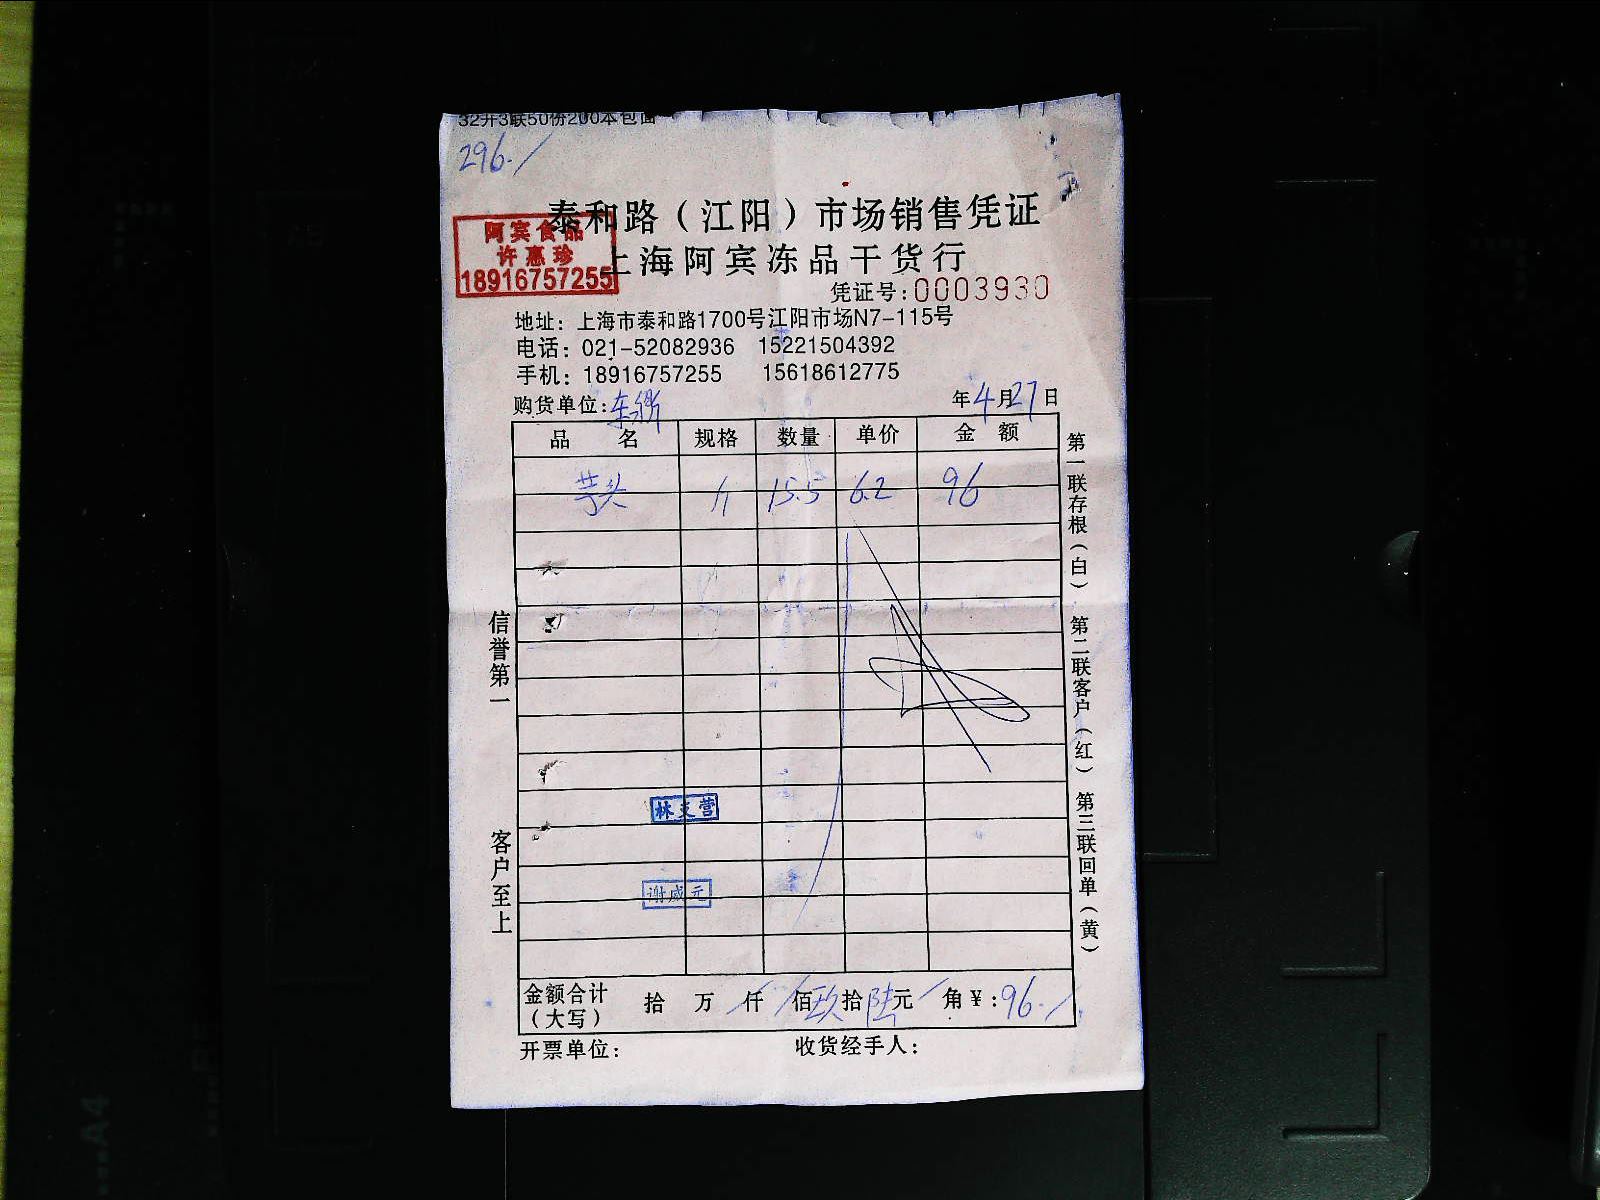 32开3联50份200本包面
296.
泰和路（江阳）市场销售凭证
阿宾食品
许惠珍
18916757255
上海阿宾冻品干货行
凭证号：0003930
地址：上海市泰和路1700号江阳市场N7-115号
电话：021-52082936 15221504392
手机：18916757255 15618612775
购货单位：
年4月27日
品名 规格 数量 单价 金额
芋头 斤 15.5 6.2 96
第一联存根（白） 第二联客户（红） 第三联回单（黄）
信誉第一 客户至上
林支营
谢咸元
金额合计（大写） 拾 万 仟 佰玖拾陆元 角¥：96.
开票单位： 收货经手人：